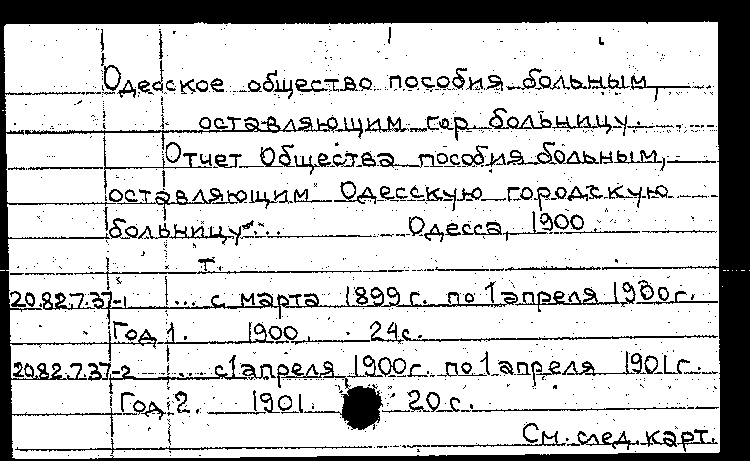 Одесское общество пособия больным,
оставляющим гор больницу.
Отчет Общества пособия больным,
оставляющим Одесскую городскую
больницу... Одесса, 1900.
т.
20.82.7.37-1 ... с марта 1899 г. по 1 апреля 1900 г.
Год 1. 1900. 24 с.
20.82.7.37-2 ... с 1 апреля 1900 г. по 1 апреля 1901 г.
Год 2. 1901. 20 с.
См. след. карт.